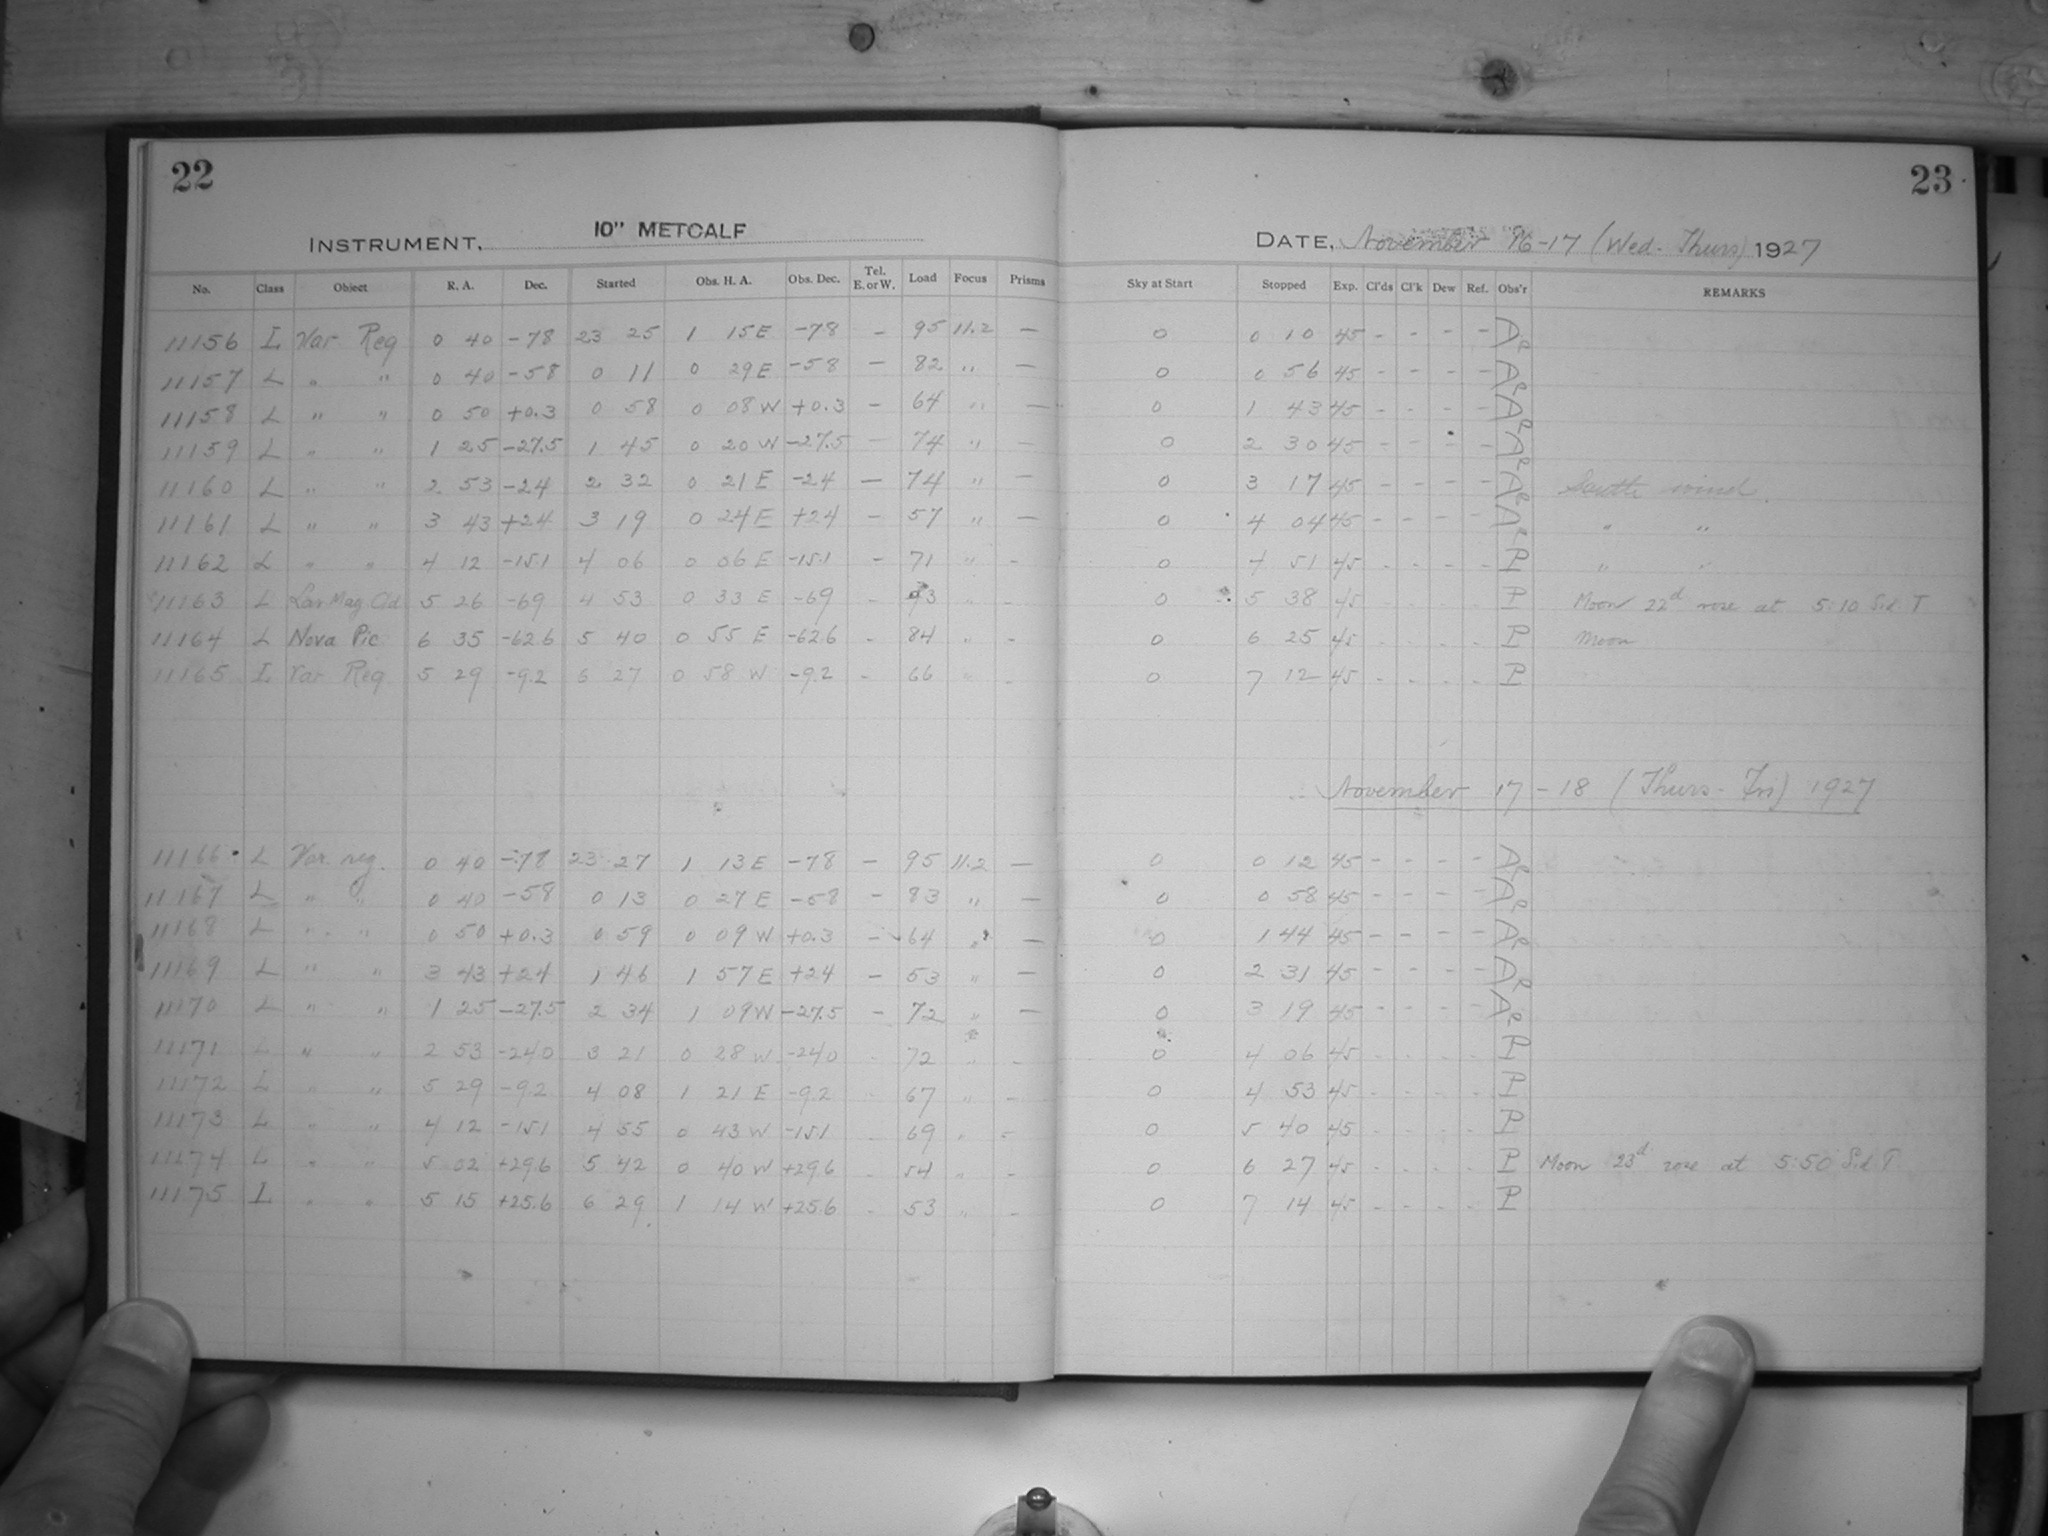 22
23
INSTRUMENT, 10" METCALF
DATE, November 16-17 (Wed. Thurs) 1927
No. Class Object R. A. Dec. Started Obs. H. A. Obs. Dec. Tel. E. or W. Load Focus Prisms Sky at Start Stopped Exp. Cl'ds Cl'k Dew Ref. Obs'r REMARKS
11156 L Var Reg 0 40 -78 23 25 1 15 E -78 - 95 11.2 - 0 0 10 45 - - - - AP
11157 L " " 0 40 -58 0 11 0 29 E -58 - 82 " - 0 0 56 45 - - - - AP
11158 L " " 0 50 +0.3 0 58 0 08 W +0.3 - 64 " - 0 1 43 45 - - - - AP
11159 L " " 1 25 -27.5 1 45 0 20 W -27.5 - 74 " - 0 2 30 45 - - - - AP
11160 L " " 2 53 -24 2 32 0 21 E -24 - 74 " - 0 3 17 45 - - - - AP South wind.
11161 L " " 3 43 +24 3 19 0 24 E +24 - 57 " - 0 4 04 45 - - - - AP " "
11162 L " " 4 12 -15.1 4 06 0 06 E -15.1 - 71 " - 0 4 51 45 - - - - P " "
11163 L Lar Mag Cld 5 26 -69 4 53 0 33 E -69 - 93 " - 0 5 38 45 - - - - P Moon 22d rose at 5:10 Sid T
11164 L Nova Pic 6 35 -62.6 5 40 0 55 E -62.6 - 84 " - 0 6 25 45 - - - - P Moon
11165 L Var Reg 5 29 -9.2 6 27 0 58 W -9.2 - 66 " - 0 7 12 45 - - - - P
November 17-18 (Thurs-Fri) 1927
11166 L Var reg. 0 40 -78 23 27 1 13 E -78 - 95 11.2 - 0 0 12 45 - - - - AP
11167 L " " 0 40 -58 0 13 0 27 E -58 - 83 " - 0 0 58 45 - - - - AP
11168 L " " 0 50 +0.3 0 59 0 09 W +0.3 - 64 " - 0 1 44 45 - - - - AP
11169 L " " 3 43 +24 1 46 1 57 E +24 - 53 " - 0 2 31 45 - - - - AP
11170 L " " 1 25 -27.5 2 34 1 09 W -27.5 - 72 " - 0 3 19 45 - - - - AP
11171 L " " 2 53 -24.0 3 21 0 28 W -24.0 - 72 " - 0 4 06 45 - - - - P
11172 L " " 5 29 -9.2 4 08 1 21 E -9.2 - 67 " - 0 4 53 45 - - - - P
11173 L " " 4 12 -15.1 4 55 0 43 W -15.1 - 69 " - 0 5 40 45 - - - - P
11174 L " " 5 02 +29.6 5 42 0 40 W +29.6 - 54 " - 0 6 27 45 - - - - P Moon 23d rose at 5:50 Sid T.
11175 L " " 5 15 +25.6 6 29 1 14 W +25.6 - 53 " - 0 7 14 45 - - - - P